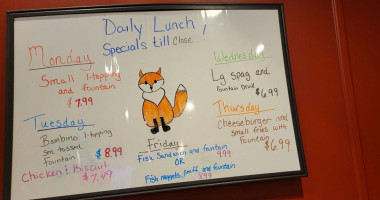 Daily Lunch
Specials till Close!
Monday
Small 1-topping
and fountain
$7.99
Tuesday
Bambino 1-topping
sm. tossed
fountain
$8.99
Chicken & Biscuit
$7.49
Wednesday
Lg Spag and
fountain Drink
$6.99
Thursday
Cheeseburger and
small fries with
fountain
$6.99
Friday
Fish Sandwich and fountain
9.99
OR
Fish nuggets, and fountain